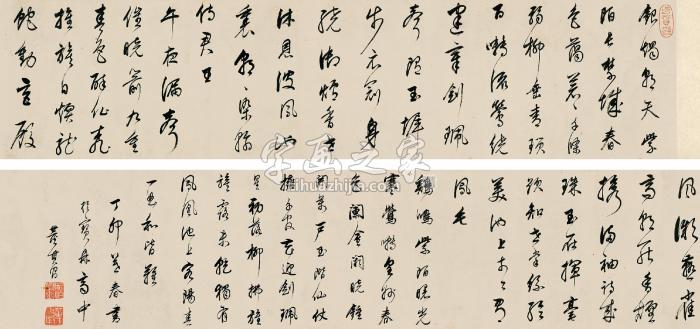 銀燭朝天紫
陌長禁城春
色藹蒼蒼千條
弱柳垂青瑣
百囀流鶯繞
建章劍珮
聲隨玉墀
步衣冠身
惹御爐香共
沐恩波鳳池
裏朝朝染翰
侍君王
午夜漏聲
催曉箭九重
春色醉仙桃
旌旗日煖龍
蛇動宮殿
風微燕雀
高朝罷香煙
携滿袖詩成
珠玉在揮毫
欲知世掌絲綸
美池上于今有
鳳毛
鷄鳴紫陌曙光
寒鶯囀皇州春
色闌金闕曉鐘
開萬戶玉階仙仗
擁千官花迎劍珮
星初落柳拂旌
旗露未乾獨有
鳳凰池上客陽春
一曲和皆難
丁卯首春書
董其昌
字画之家